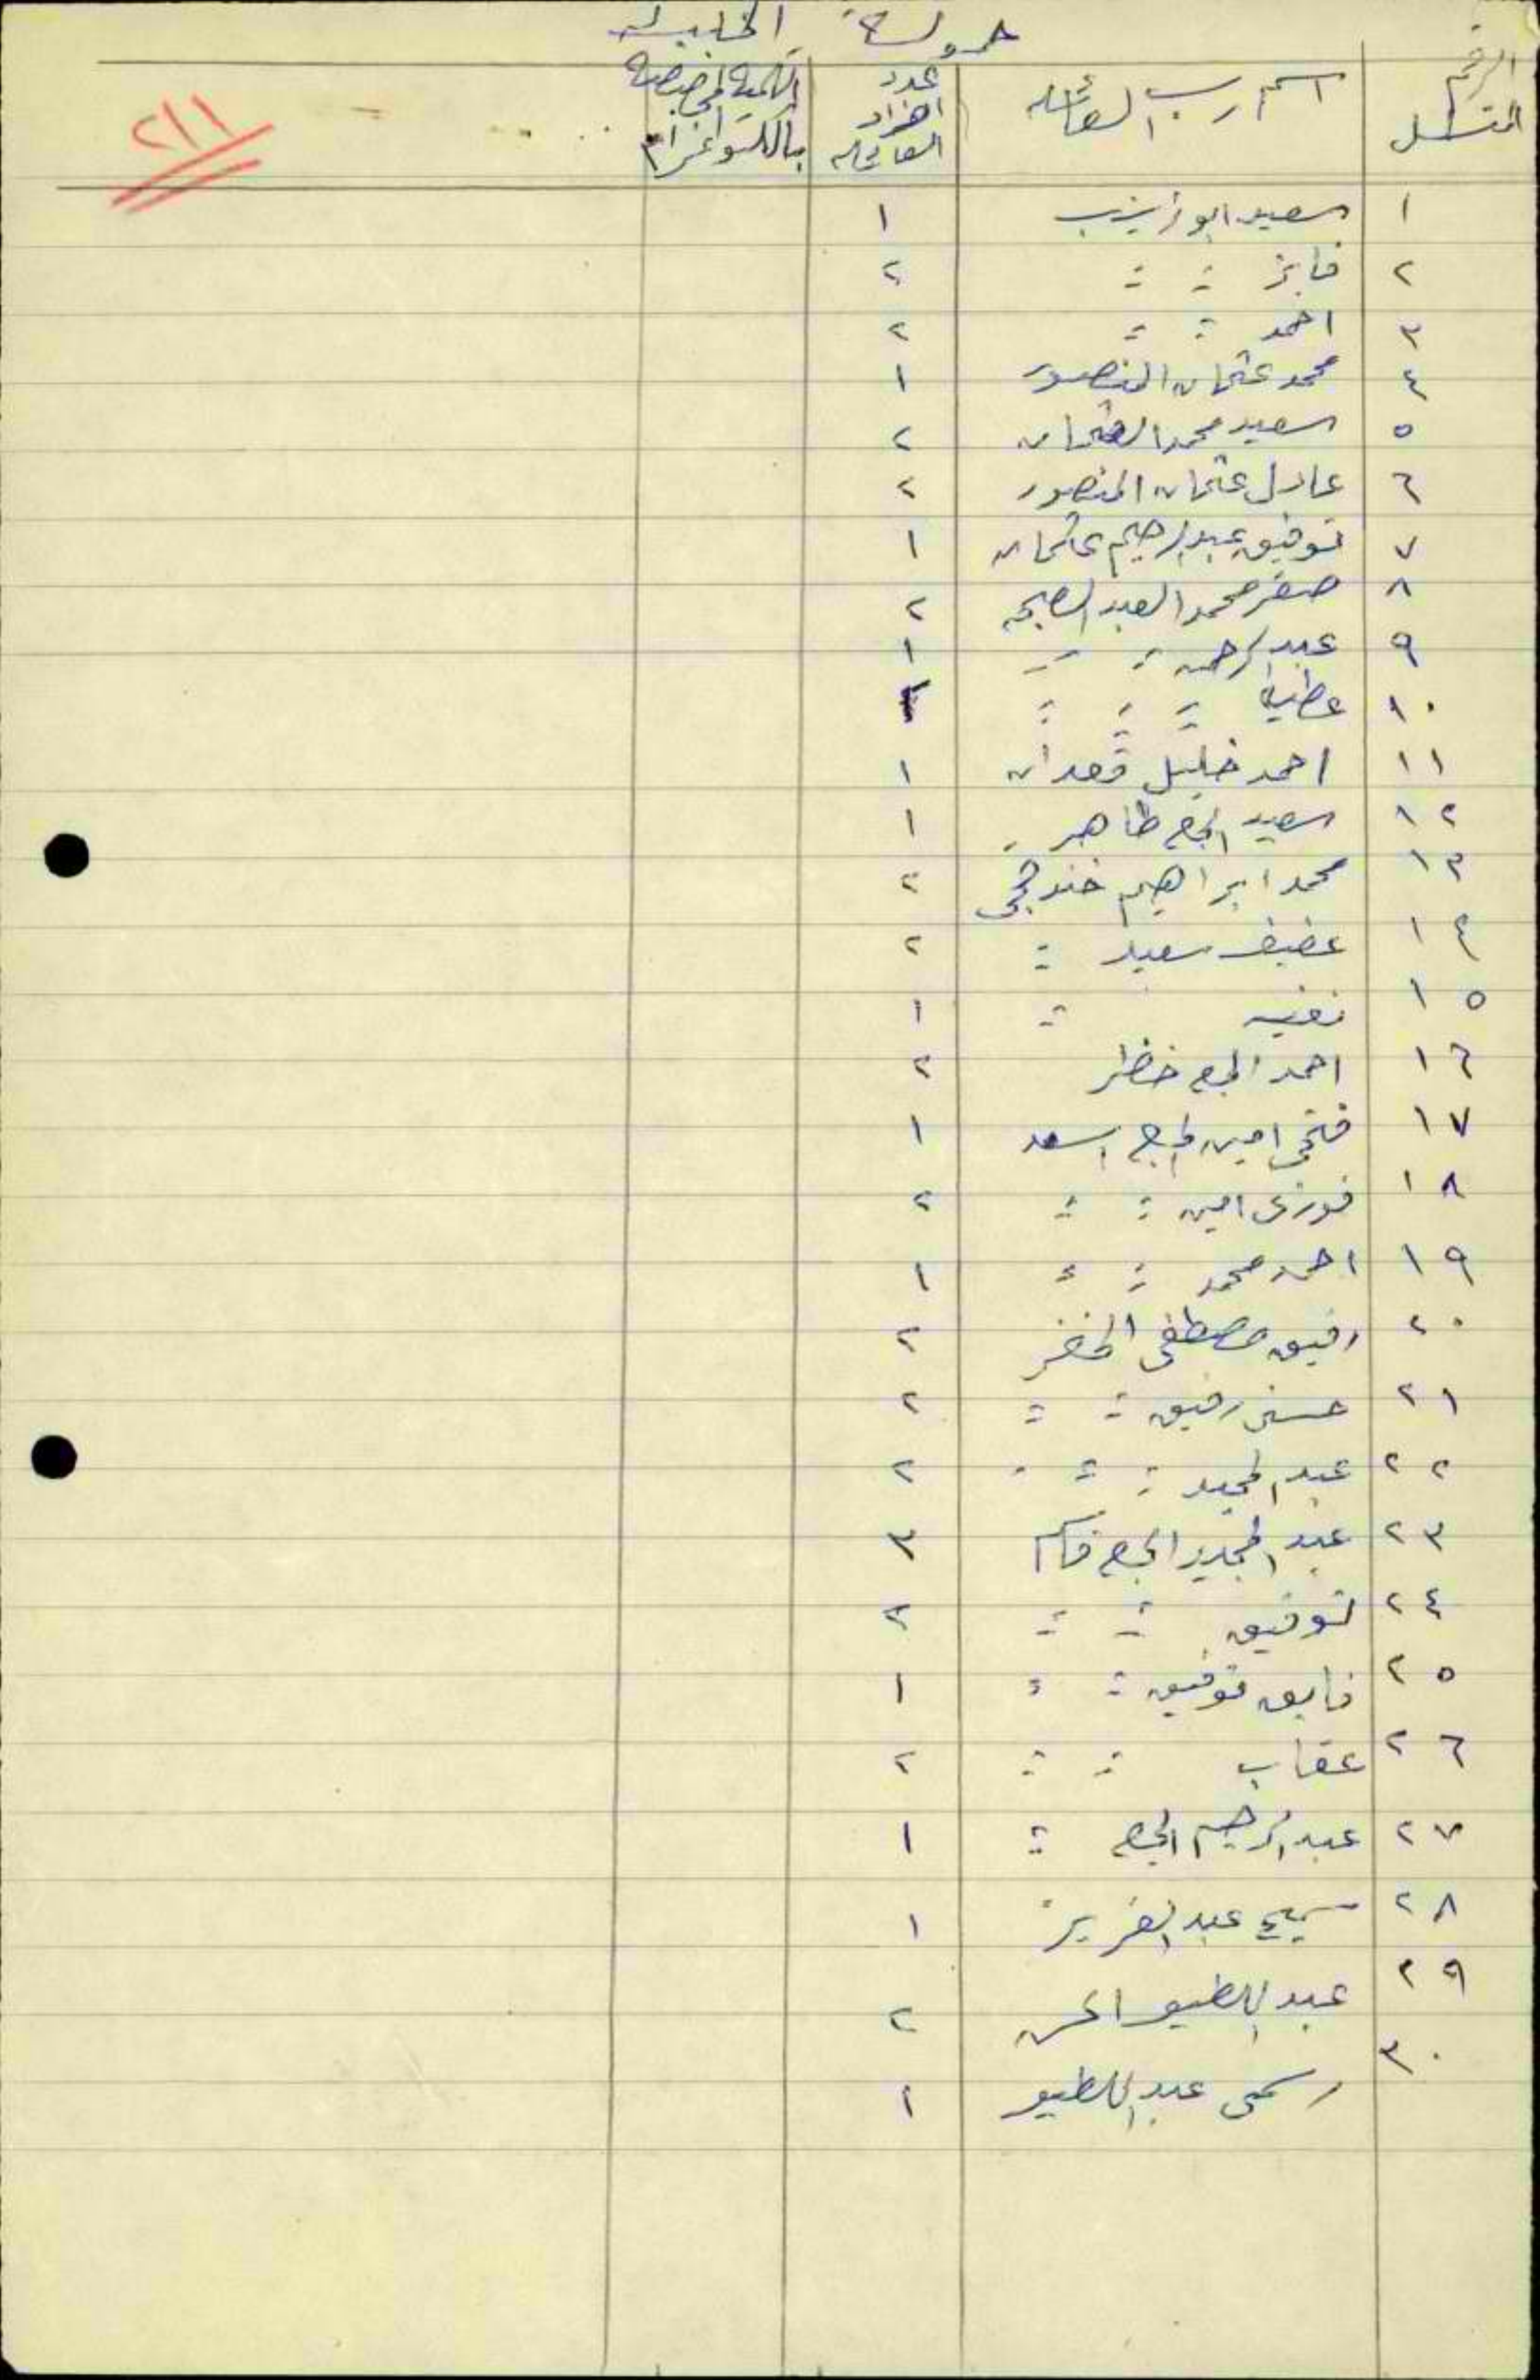 حمولة
الرقم المتسلسل | اسم رب العائلة | عدد افراد العائلة | الكمية المخصصة بالكيلو غرام
٢١١
١ سعيد ابو زينب ١
٢ فايز = = ٢
٣ احمد = = ٢
٤ محمد عثمان المنصور ١
٥ سعيد محمد العثمان ٢
٦ عادل عثمان المنصور ٢
٧ توفيق عبد الرحيم عثمان ١
٨ صقر محمد العبد الصبح ٢
٩ عبد الرحمن = = ١
١٠ عطيه = = =
١١ احمد خليل قعدان ١
١٢ سعيد الحاج طاهر ١
١٣ محمد ابراهيم خندقجي ٢
١٤ عفيف سعيد = ٢
١٥ = ١
١٦ احمد الحاج خضر ٢
١٧ فتحي امين الحاج اسعد ١
١٨ فوزي امين = = ٢
١٩ احمد محمد = = ١
٢٠ رفيق مصطفى الخضر ٢
٢١ حسني رفيق = = ٢
٢٢ عبد المجيد = = ٢
٢٣ عبد المجيد الحاج قاسم ٣
٢٤ توفيق = = ٢
٢٥ فايق توفيق = = ١
٢٦ عقاب = = ٢
٢٧ عبد الرحيم الحاج = ١
٢٨ سميح عبد العزيز ١
٢٩ عبد اللطيف الحسن ٢
٣٠ رسمي عبد اللطيف ١